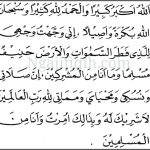 اَللهُ اَكْبَرُ كَبِيْرًا وَالْحَمْدُ لِلّٰهِ كَثِيْرًا وَسُبْحَانَ
اللهِ بُكْرَةً وَاَصِيْلًا ، اِنِّى وَجَّهْتُ وَجْهِيَ
لِلَّذِى فَطَرَ السَّمٰوَاتِ وَالْاَرْضَ حَنِيْفًا
مُسْلِمًا وَمَا اَنَا مِنَ الْمُشْرِكِيْنَ ، اِنَّ صَلَاتِى
وَنُسُكِى وَمَحْيَايَ وَمَمَاتِى لِلّٰهِ رَبِّ الْعٰلَمِيْنَ
لَاشَرِيْكَ لَهُ وَبِذٰلِكَ اُمِرْتُ وَاَنَا مِنَ
الْمُسْلِمِيْنَ .